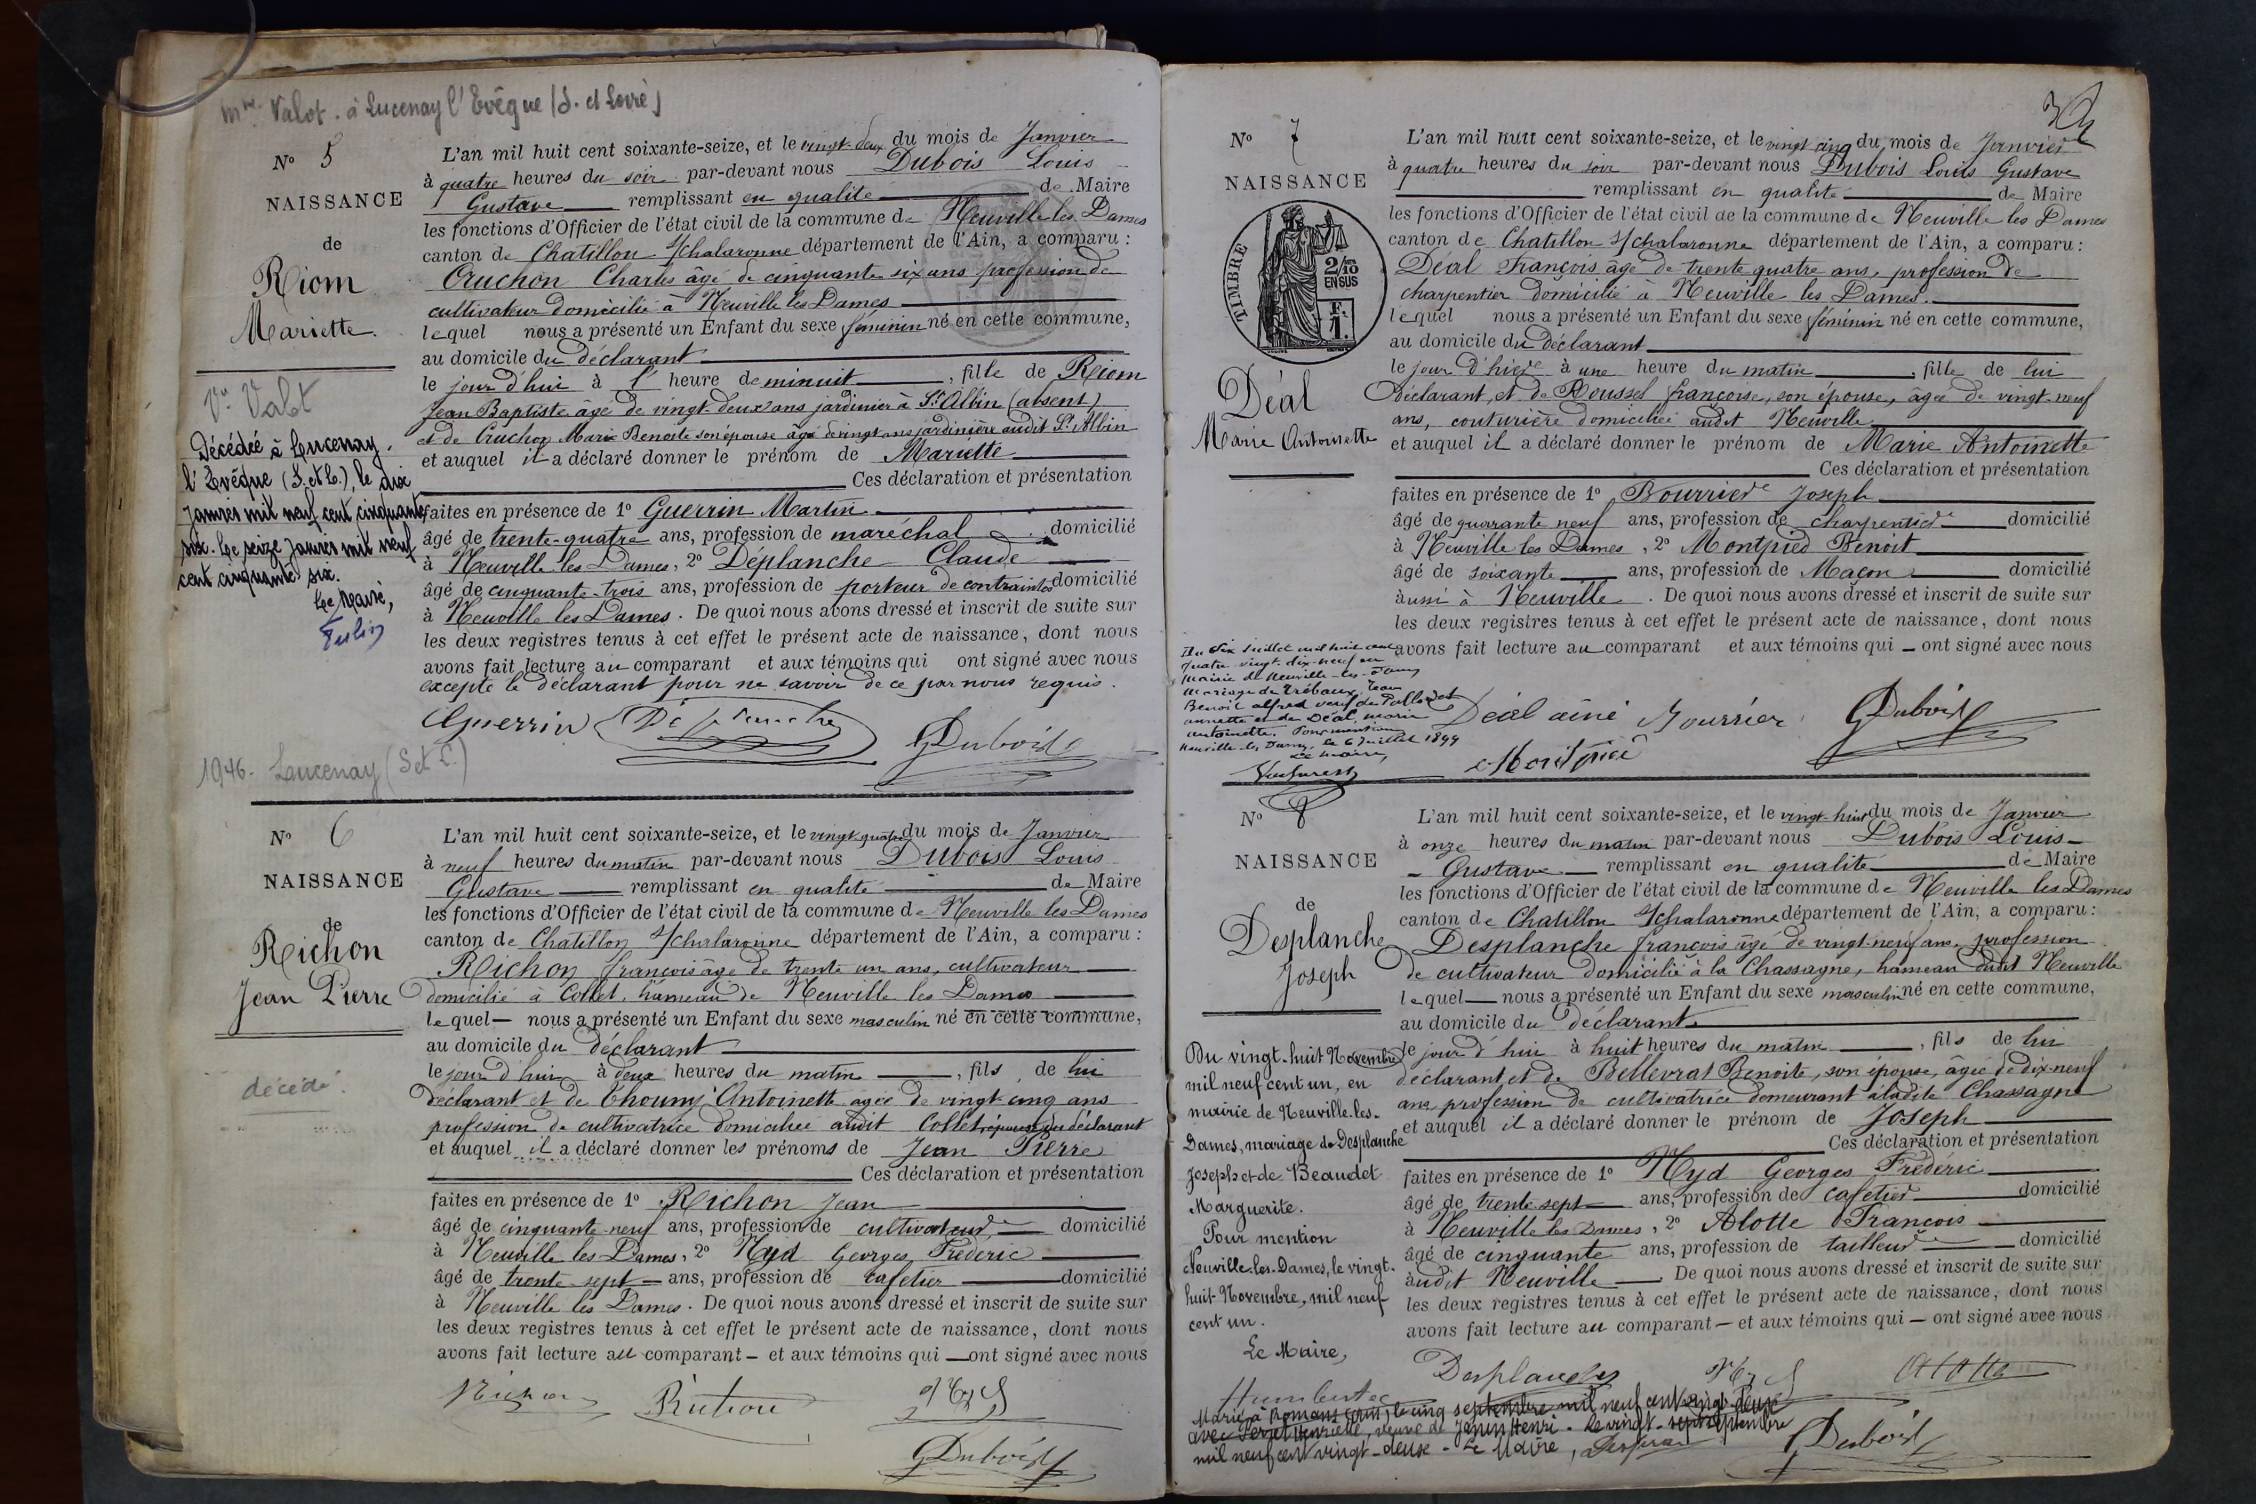 Mme Valot. à Lucenay l'Evêque (S. et Loire)
N° 5
NAISSANCE
de
Riom
Mariette.
Vve Valot
Décédée à Lucenay
l'Evêque (S. et L.), le dix
janvier mil neuf cent cinquante
six. Le seize janvier mil neuf
cent cinquante six.
Le Maire,
1946. Lucenay (S et L.)
L'an mil huit cent soixante-seize, et le vingt-deux du mois de Janvier
à quatre heures du soir par-devant nous Dubois Louis
Gustave remplissant en qualité de Maire
les fonctions d'Officier de l'état civil de la commune de Neuville les Dames
canton de Chatillon s/chalaronne département de l'Ain, a comparu :
Cruchon Charles âgé de cinquante six ans profession de
cultivateur domicilié à Neuville les Dames
lequel nous a présenté un Enfant du sexe féminin né en cette commune,
au domicile du déclarant
le jour d'hui à l' heure de minuit, fille de Riom
Jean Baptiste âgé de vingt-deux ans jardinier à St Albin (absent)
et de Cruchon Marie Benoite son épouse âgée de vingt ans jardinière audit St Albin
et auquel il a déclaré donner le prénom de Mariette
Ces déclaration et présentation
faites en présence de 1° Guerrin Martin
âgé de trente-quatre ans, profession de maréchal domicilié
à Neuville les Dames, 2° Déplanche Claude
âgé de cinquante-trois ans, profession de porteur de contraintes domicilié
à Neuville les Dames. De quoi nous avons dressé et inscrit de suite sur
les deux registres tenus à cet effet le présent acte de naissance, dont nous
avons fait lecture au comparant et aux témoins qui ont signé avec nous
excepté le déclarant pour ne savoir de ce par nous requis.
Guerrin Déplanche GDubois
N° 6
NAISSANCE
de
Richon
Jean Pierre
décédé.
L'an mil huit cent soixante-seize, et le vingt-quatre du mois de Janvier
à neuf heures du matin par-devant nous Dubois Louis
Gustave remplissant en qualité de Maire
les fonctions d'Officier de l'état civil de la commune de Neuville les Dames
canton de Chatillon s/chalaronne département de l'Ain, a comparu :
Richon françois âgé de trente un ans, cultivateur
domicilié à Collet, hameau de Neuville les Dames
lequel — nous a présenté un Enfant du sexe masculin né en cette commune,
au domicile du déclarant
le jour d'hui à deux heures du matin, fils de lui
déclarant et de Thouny Antoinette agée de vingt cinq ans
profession de cultivatrice domiciliée audit Collet, épouse du déclarant
et auquel il a déclaré donner les prénoms de Jean Pierre
Ces déclaration et présentation
faites en présence de 1° Richon Jean
âgé de cinquante neuf ans, profession de cultivateur domicilié
à Neuville les Dames, 2° Nyd Georges Frédéric
âgé de trente sept ans, profession de cafetier domicilié
à Neuville les Dames. De quoi nous avons dressé et inscrit de suite sur
les deux registres tenus à cet effet le présent acte de naissance, dont nous
avons fait lecture au comparant — et aux témoins qui — ont signé avec nous
Richon Richon Nyd
GDubois
N° 7
NAISSANCE
TIMBRE
2/10
EN SUS
F.
1.
Déal
Marie Antoinette
L'an mil huit cent soixante-seize, et le vingt cinq du mois de Janvier
à quatre heures du soir par-devant nous Dubois Louis Gustave
remplissant en qualité de Maire
les fonctions d'Officier de l'état civil de la commune de Neuville les Dames
canton de Chatillon s/chalaronne département de l'Ain, a comparu :
Déal François âgé de trente quatre ans, profession de
charpentier domicilié à Neuville les Dames.
lequel nous a présenté un Enfant du sexe féminin né en cette commune,
au domicile du déclarant
le jour d'hier à une heure du matin, fille de lui
Déclarant, et de Roussel françoise, son épouse, âgée de vingt-neuf
ans, couturière domiciliée audit Neuville
et auquel il a déclaré donner le prénom de Marie Antoinette
Ces déclaration et présentation
faites en présence de 1° Bourrier Joseph
âgé de quarante neuf ans, profession de charpentier domicilié
à Neuville les Dames, 2° Montpied Benoit
âgé de soixante ans, profession de Maçon domicilié
aussi à Neuville. De quoi nous avons dressé et inscrit de suite sur
les deux registres tenus à cet effet le présent acte de naissance, dont nous
avons fait lecture au comparant et aux témoins qui — ont signé avec nous
Du six Juillet mil huit cent
quatre vingt dix-neuf en
Mairie de Neuville-les-Dames
mariage de Trébaux Jean
Benoit alfred veuf de
annette et de Déal marie
antoinette. Pour mention
Neuville-les-Dames, le 6 Juillet 1899
Le maire,
Déal ainé Bourrier GDubois
Montpied
N° 8
NAISSANCE
de
Desplanche
Joseph
L'an mil huit cent soixante-seize, et le vingt-huit du mois de Janvier
à onze heures du matin par-devant nous Dubois Louis
Gustave remplissant en qualité de Maire
les fonctions d'Officier de l'état civil de la commune de Neuville les Dames
canton de Chatillon s/chalaronne département de l'Ain, a comparu :
Desplanche françois âgé de vingt-neuf ans, profession
de cultivateur domicilié à la Chassagne, hameau dudit Neuville
lequel — nous a présenté un Enfant du sexe masculin né en cette commune,
au domicile du déclarant
le jour d'hui à huit heures du matin, fils de lui
déclarant et de Bellevrat Benoite, son épouse, âgée de dix-neuf
ans profession de cultivatrice demeurant à ladite Chassagne
et auquel il a déclaré donner le prénom de Joseph
Ces déclaration et présentation
faites en présence de 1° Nyd Georges Frédéric
âgé de trente sept ans, profession de cafetier domicilié
à Neuville les Dames, 2° Alotte François
âgé de cinquante ans, profession de tailleur domicilié
audit Neuville. De quoi nous avons dressé et inscrit de suite sur
les deux registres tenus à cet effet le présent acte de naissance, dont nous
avons fait lecture au comparant — et aux témoins qui — ont signé avec nous
Du vingt-huit Novembre
mil neuf cent un, en
mairie de Neuville-les-
Dames, mariage de Desplanche
Joseph et de Beaudet
Marguerite.
Pour mention
Neuville-les-Dames, le vingt-
huit Novembre, mil neuf
cent un.
Le Maire,
Desplanche Nyd Alotte
Marié à Romans (Ain) le cinq septembre mil neuf cent vingt-deux
avec Perret Henriette, veuve de Henri. Le vingt-septembre
mil neuf cent vingt-deux - Le Maire,
GDubois